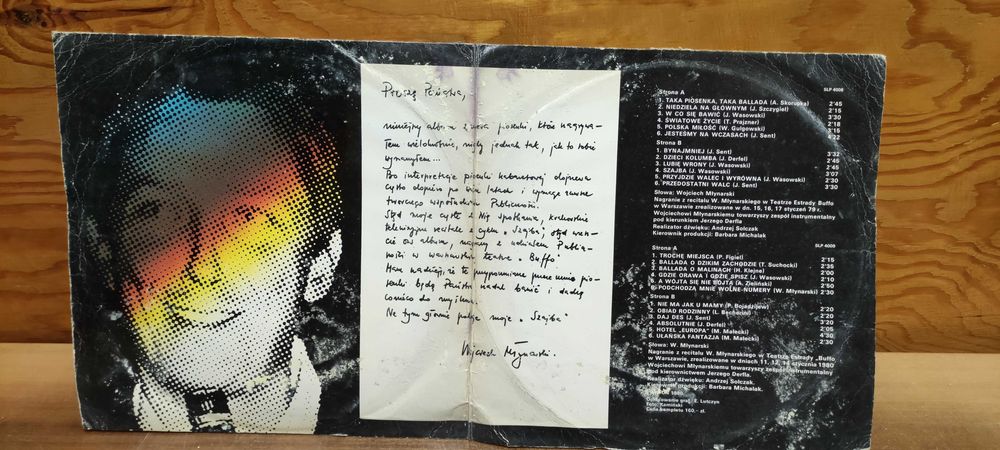 Proszę Państwa,
niniejszy album zawiera piosenki, które nagrywa-
łem wielokrotnie, nigdy jednak tak, jak to sobie
wymarzyłem...
Bo interpretacja piosenki kabaretowej dojrzewa
często dopiero po latach i wymaga zawsze
twórczego współudziału Publiczności.
Stąd moje częste z Nią spotkania,
telewizyjne recitale z cyklu „Szajba”, stąd wresz-
cie ów album, nagrany z udziałem Publicz-
ności w warszawskim teatrze „Buffo”
Mam nadzieję, że te przypomniane przeze mnie pio-
senki będą Państwa nadal bawić i dadzą
co nieco do myślenia.
Na tym głównie polega moja „Szajba”
Wojciech Młynarski.
Strona A SLP 4008
1. TAKA PIOSENKA, TAKA BALLADA (A. Skorupka) 2'45
2. NIEDZIELA NA GŁÓWNYM (J. Szczygieł) 2'15
3. W CO SIĘ BAWIĆ (J. Wasowski) 3'30
4. ŚWIATOWE ŻYCIE (T. Prejzner) 2'18
5. POLSKA MIŁOŚĆ (W. Gulgowski) 3'15
6. JESTEŚMY NA WCZASACH (J. Sent) 4'22
Strona B
1. BYNAJMNIEJ (J. Sent) 3'32
2. DZIECI KOLUMBA (J. Derfel) 2'45
3. LUBIĘ WRONY (J. Wasowski) 2'45
4. SZAJBA (J. Wasowski) 3'07
5. PRZYJDZIE WALEC I WYRÓWNA (J. Wasowski) 2'30
6. PRZEDOSTATNI WALC (J. Sent) 3'30
Słowa: Wojciech Młynarski
Nagranie z recitalu W. Młynarskiego w Teatrze Estrady Buffo
w Warszawie zrealizowane w dn. 15, 16, 17 styczeń 79 r.
Wojciechowi Młynarskiemu towarzyszy zespół instrumentalny
pod kierunkiem Jerzego Derfla
Realizator dźwięku: Andrzej Solczak
Kierownik produkcji: Barbara Michalak
Strona A SLP 4009
1. TROCHĘ MIEJSCA (P. Figiel) 2'15
2. BALLADA O DZIKIM ZACHODZIE (T. Suchocki) 2'35
3. BALLADA O MALINACH (H. Klejne) 2'00
4. GDZIE ORAWA I GDZIE SPISZ (J. Wasowski) 2'10
5. A WÓJTA SIĘ NIE BÓJTA (A. Zieliński) 2'50
6. PODCHODZĄ MNIE WOLNE NUMERY (W. Młynarski) 2'30
Strona B
1. NIE MA JAK U MAMY (P. Bojadżijew) 2'20
2. OBIAD RODZINNY (L. Bechcicki) 2'20
3. DAJ DES (J. Sent) 3'20
4. ABSOLUTNIE (J. Derfel) 2'05
5. HOTEL „EUROPA” (M. Małecki) 4'30
6. UŁAŃSKA FANTAZJA (M. Małecki) 2'30
Słowa: W. Młynarski
Nagranie z recitalu W. Młynarskiego w Teatrze Estrady „Buffo
w Warszawie, zrealizowane w dniach 11, 12, styczna 1980
Wojciechowi Młynarskiemu towarzyszy zespół instrumentalny
pod kierownictwem Jerzego Derfla.
Realizator dźwięku: Andrzej Solczak.
Kierownik produkcji: Barbara Michalak.
1980
Opracowanie graf. E. Lutczyn
Foto: Kamiński
Cena kompletu 160,- zł.